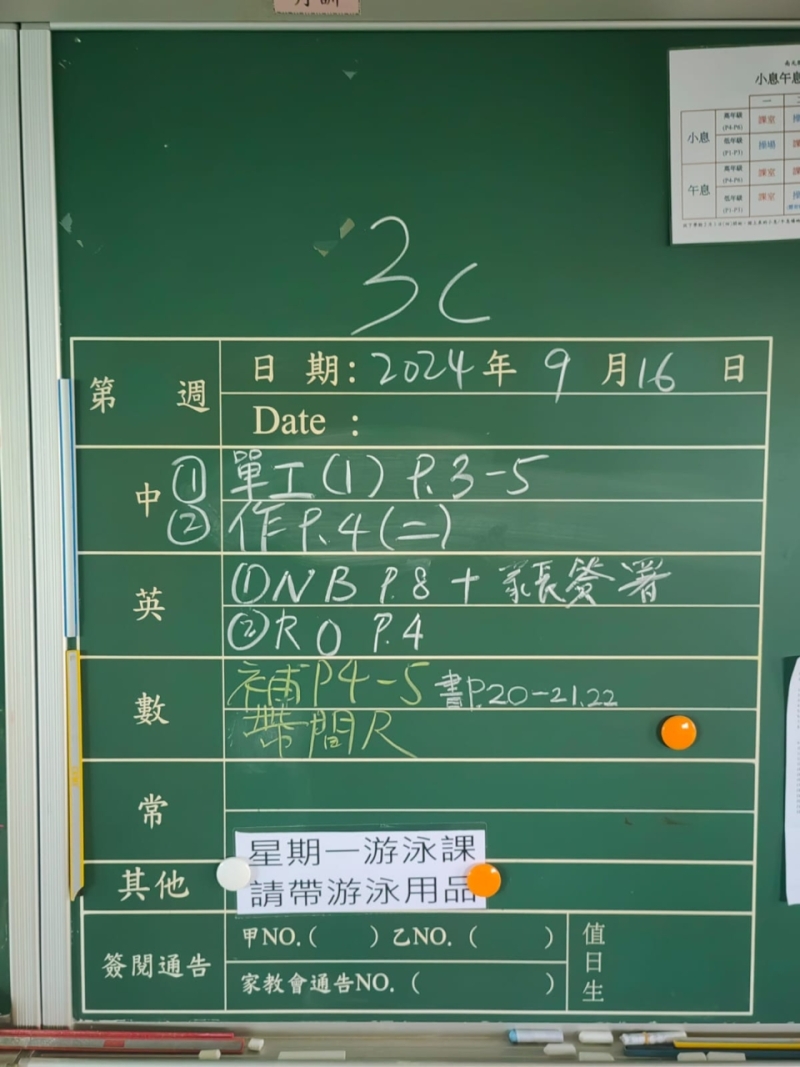 小息午息
一
小息
高年級
(P4-P6)
課室
低年級
(P1-P3)
操場
午息
高年級
(P4-P6)
課室
低年級
(P1-P3)
課室
3C
第 週
日 期: 2024 年 9 月 16 日
Date :
中
① 單工(1) P.3-5
② 作P.4(二)
英
① NB P.8 + 家長簽署
② RO P.4
數
補P4-5 書P.20-21,22
帶間尺
常
其他
星期一游泳課
請帶游泳用品
簽閱通告
甲NO.( ) 乙NO. ( )
家教會通告NO. ( )
值日生